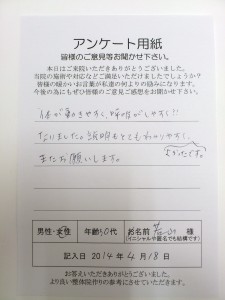 アンケート用紙
皆様のご意見等お聞かせ下さい。
本日はご来院いただきありがとうございました。
当院の施術や対応などご満足いただけましたでしょうか?
皆様の暖かいお言葉が私達の何よりの励みになります。
今後の為にもぜひ皆様のご意見ご感想をお聞かせ下さい。
体が動きやすく、呼吸がしやすく!!
なりました。説明もとてもわかりやすく、
よかったです。
またお願いします。
男性・女性 年齢 50代 お名前 様
(イニシャルや匿名でも結構です)
記入日 2014年 4月 18日
お答えいただきありがとうございました。
より良い整体院作りの参考にさせていただきます。